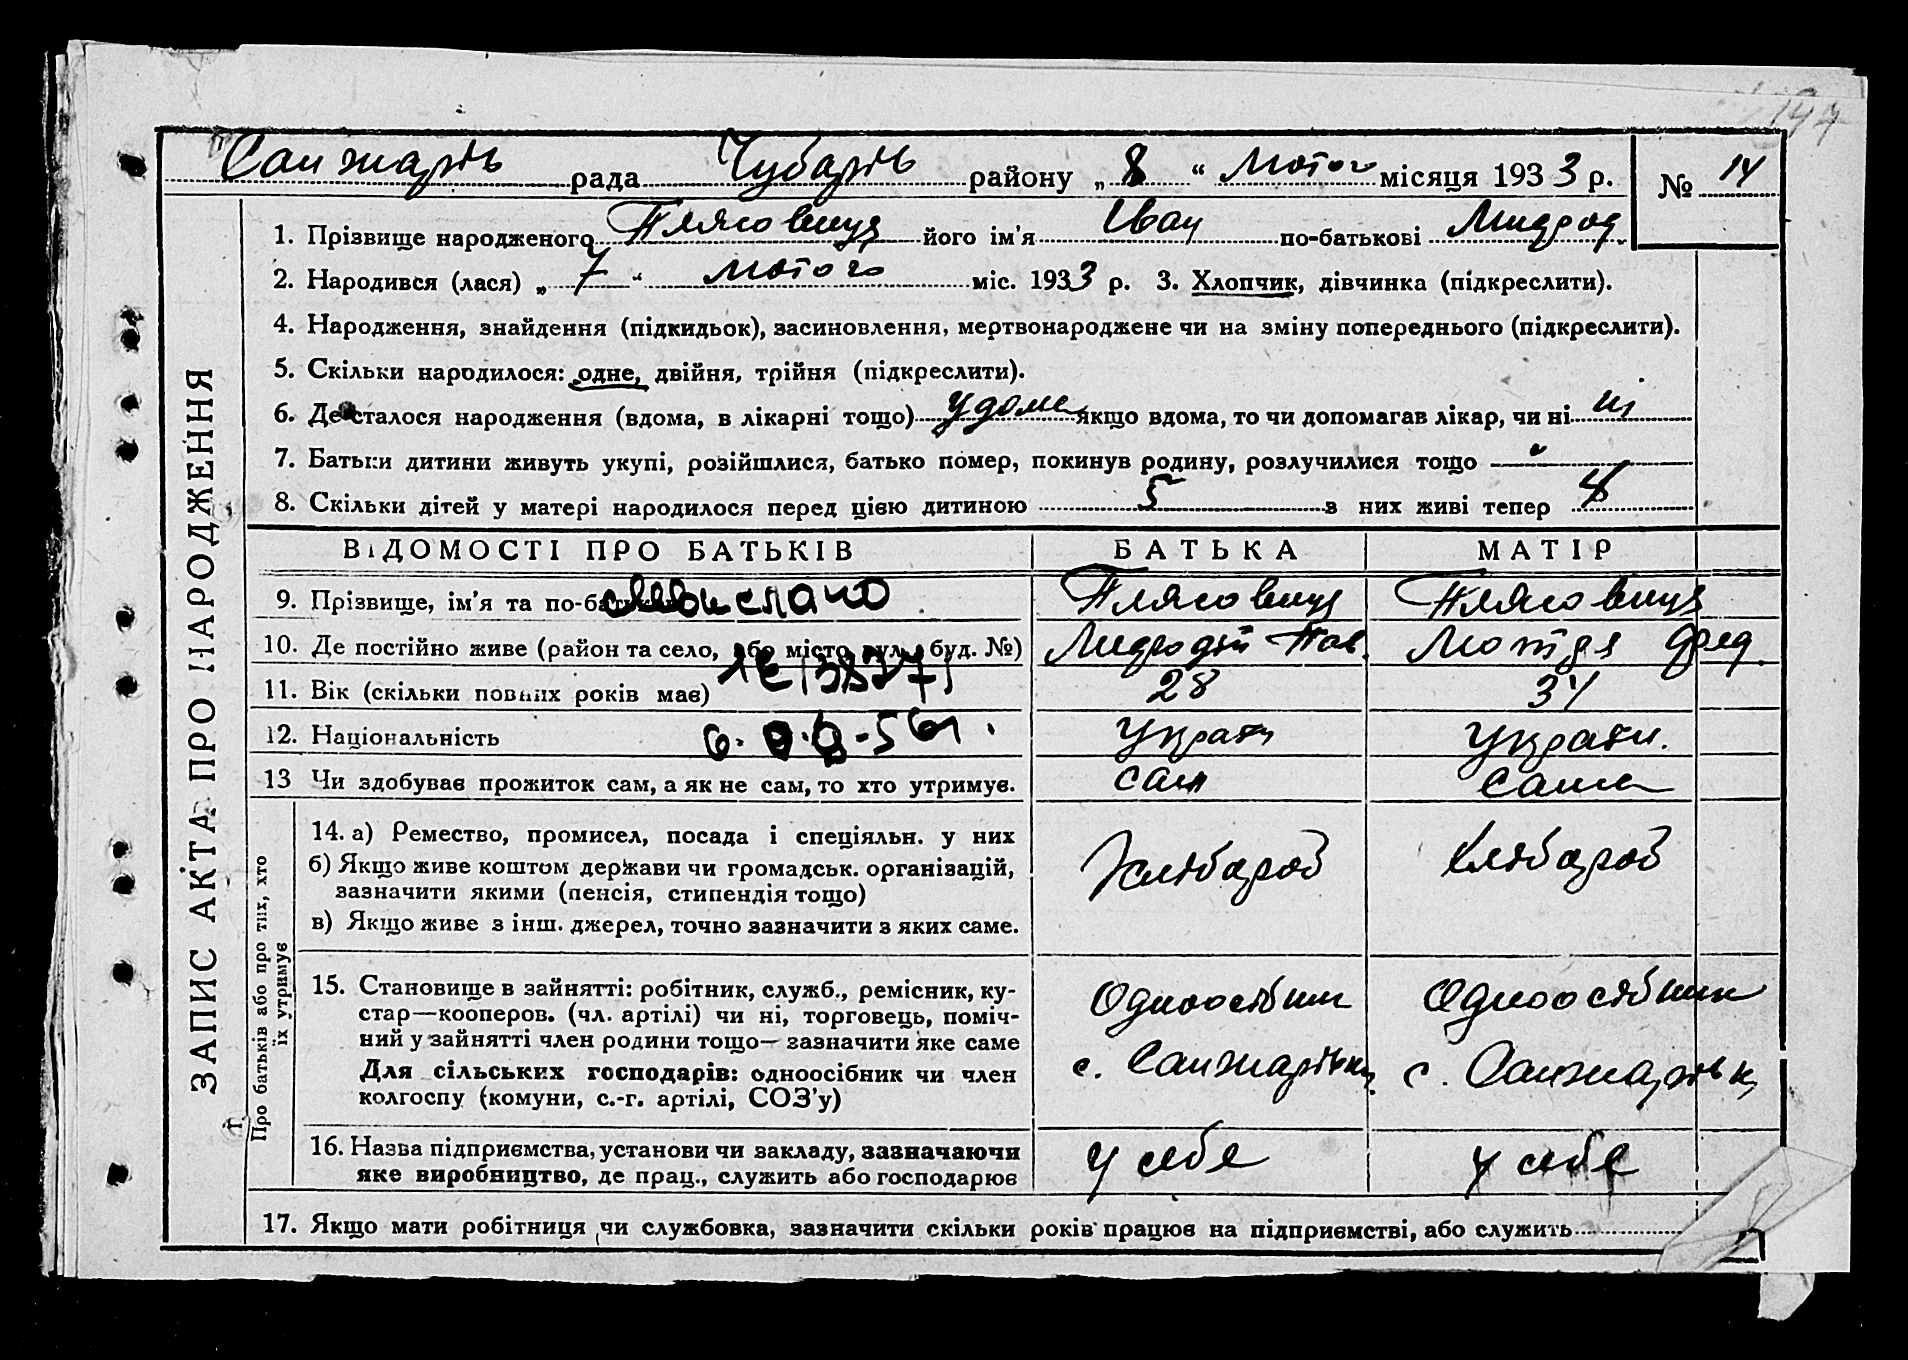 Санжарів рада Чубарів району „ 8 “ Лютого місяця 1933 р. № 14
1. Прізвище народженого його ім'я Іван по-батькові
2. Народився (лася) „ 7 “ лютого міс. 1933 р. 3. Хлопчик, дівчинка (підкреслити).
4. Народження, знайдення (підкидьок), засиновлення, мертвонароджене чи на зміну попереднього (підкреслити).
5. Скільки народилося: одне, двійня, трійня (підкреслити).
6. Де сталося народження (вдома, в лікарні тощо) удома якщо вдома, то чи допомагав лікар, чи ні ні
7. Батьки дитини живуть укупі, розійшлися, батько помер, покинув родину, розлучилися тощо
8. Скільки дітей у матері народилося перед цією дитиною 5 з них живі тепер 4
ЗАПИС АКТА ПРО НАРОДЖЕННЯ
ВІДОМОСТІ ПРО БАТЬКІВ БАТЬКА МАТІР
9. Прізвище, ім'я та по-батькові
10. Де постійно живе (район та село, або місто, вул., буд. №) Мотря
11. Вік (скільки повних років має) 28
12. Національність Україн Україн.
13 Чи здобуває прожиток сам, а як не сам, то хто утримує. сам сама
Про батьків або про тих, хто їх утримує
14. а) Ремество, промисел, посада і спеціяльн. у них
б) Якщо живе коштом держави чи громадськ. організацій,
зазначити якими (пенсія, стипендія тощо)
в) Якщо живе з інш. джерел, точно зазначити з яких саме.
Хлібороб Хлібороб
15. Становище в зайнятті: робітник, служб., ремісник, ку-
стар—кооперов. (чл. артілі) чи ні, торговець, поміч-
ний у зайнятті член родини тощо— зазначити яке саме
Для сільських господарів: одноосібник чи член
колгоспу (комуни, с.-г. артілі, СОЗ'у)
Одноосібник Одноосібник
с. Санжарівка с. Санжарівка
16. Назва підприємства, установи чи закладу, зазначаючи
яке виробництво, де прац., служить або господарює
у себе у себе
17. Якщо мати робітниця чи службовка, зазначити скільки років працює на підприємстві, або служить